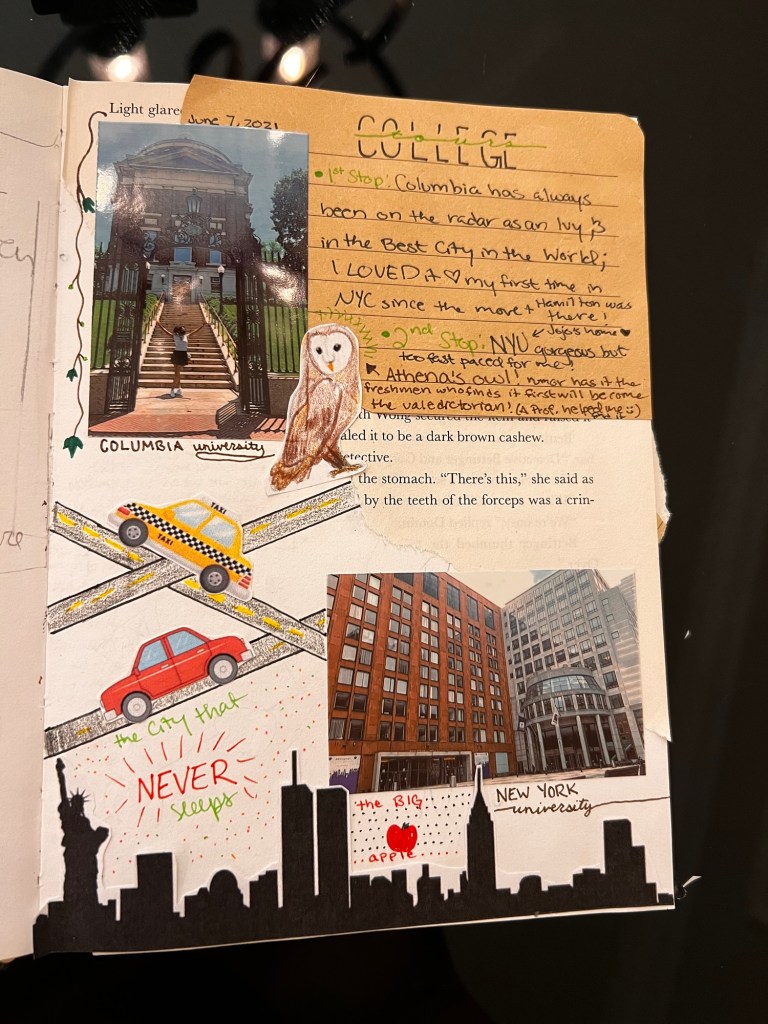 Light glare
June 7, 2021
COLLEGE
tours
• 1st Stop: Columbia has always
been on the radar as an Ivy, &
in the Best City in the World;
I LOVED it ♡ my first time in
NYC since the move + Hamilton was
there!
• 2nd Stop: NYU ← Jojo's home ♥
gorgeous but
too fast paced for me!
Athena's owl! rumor has it the
freshmen who finds it first will become
the valedictorian! (A Prof. helped me :)
find it
COLUMBIA university
th Wong secured the item and raised it
aled it to be a dark brown cashew.
etective.
the stomach. “There's this,” she said as
by the teeth of the forceps was a crin-
TAXI
TAXI
the city that
NEVER
sleeps
the BIG
apple
NEW YORK
university